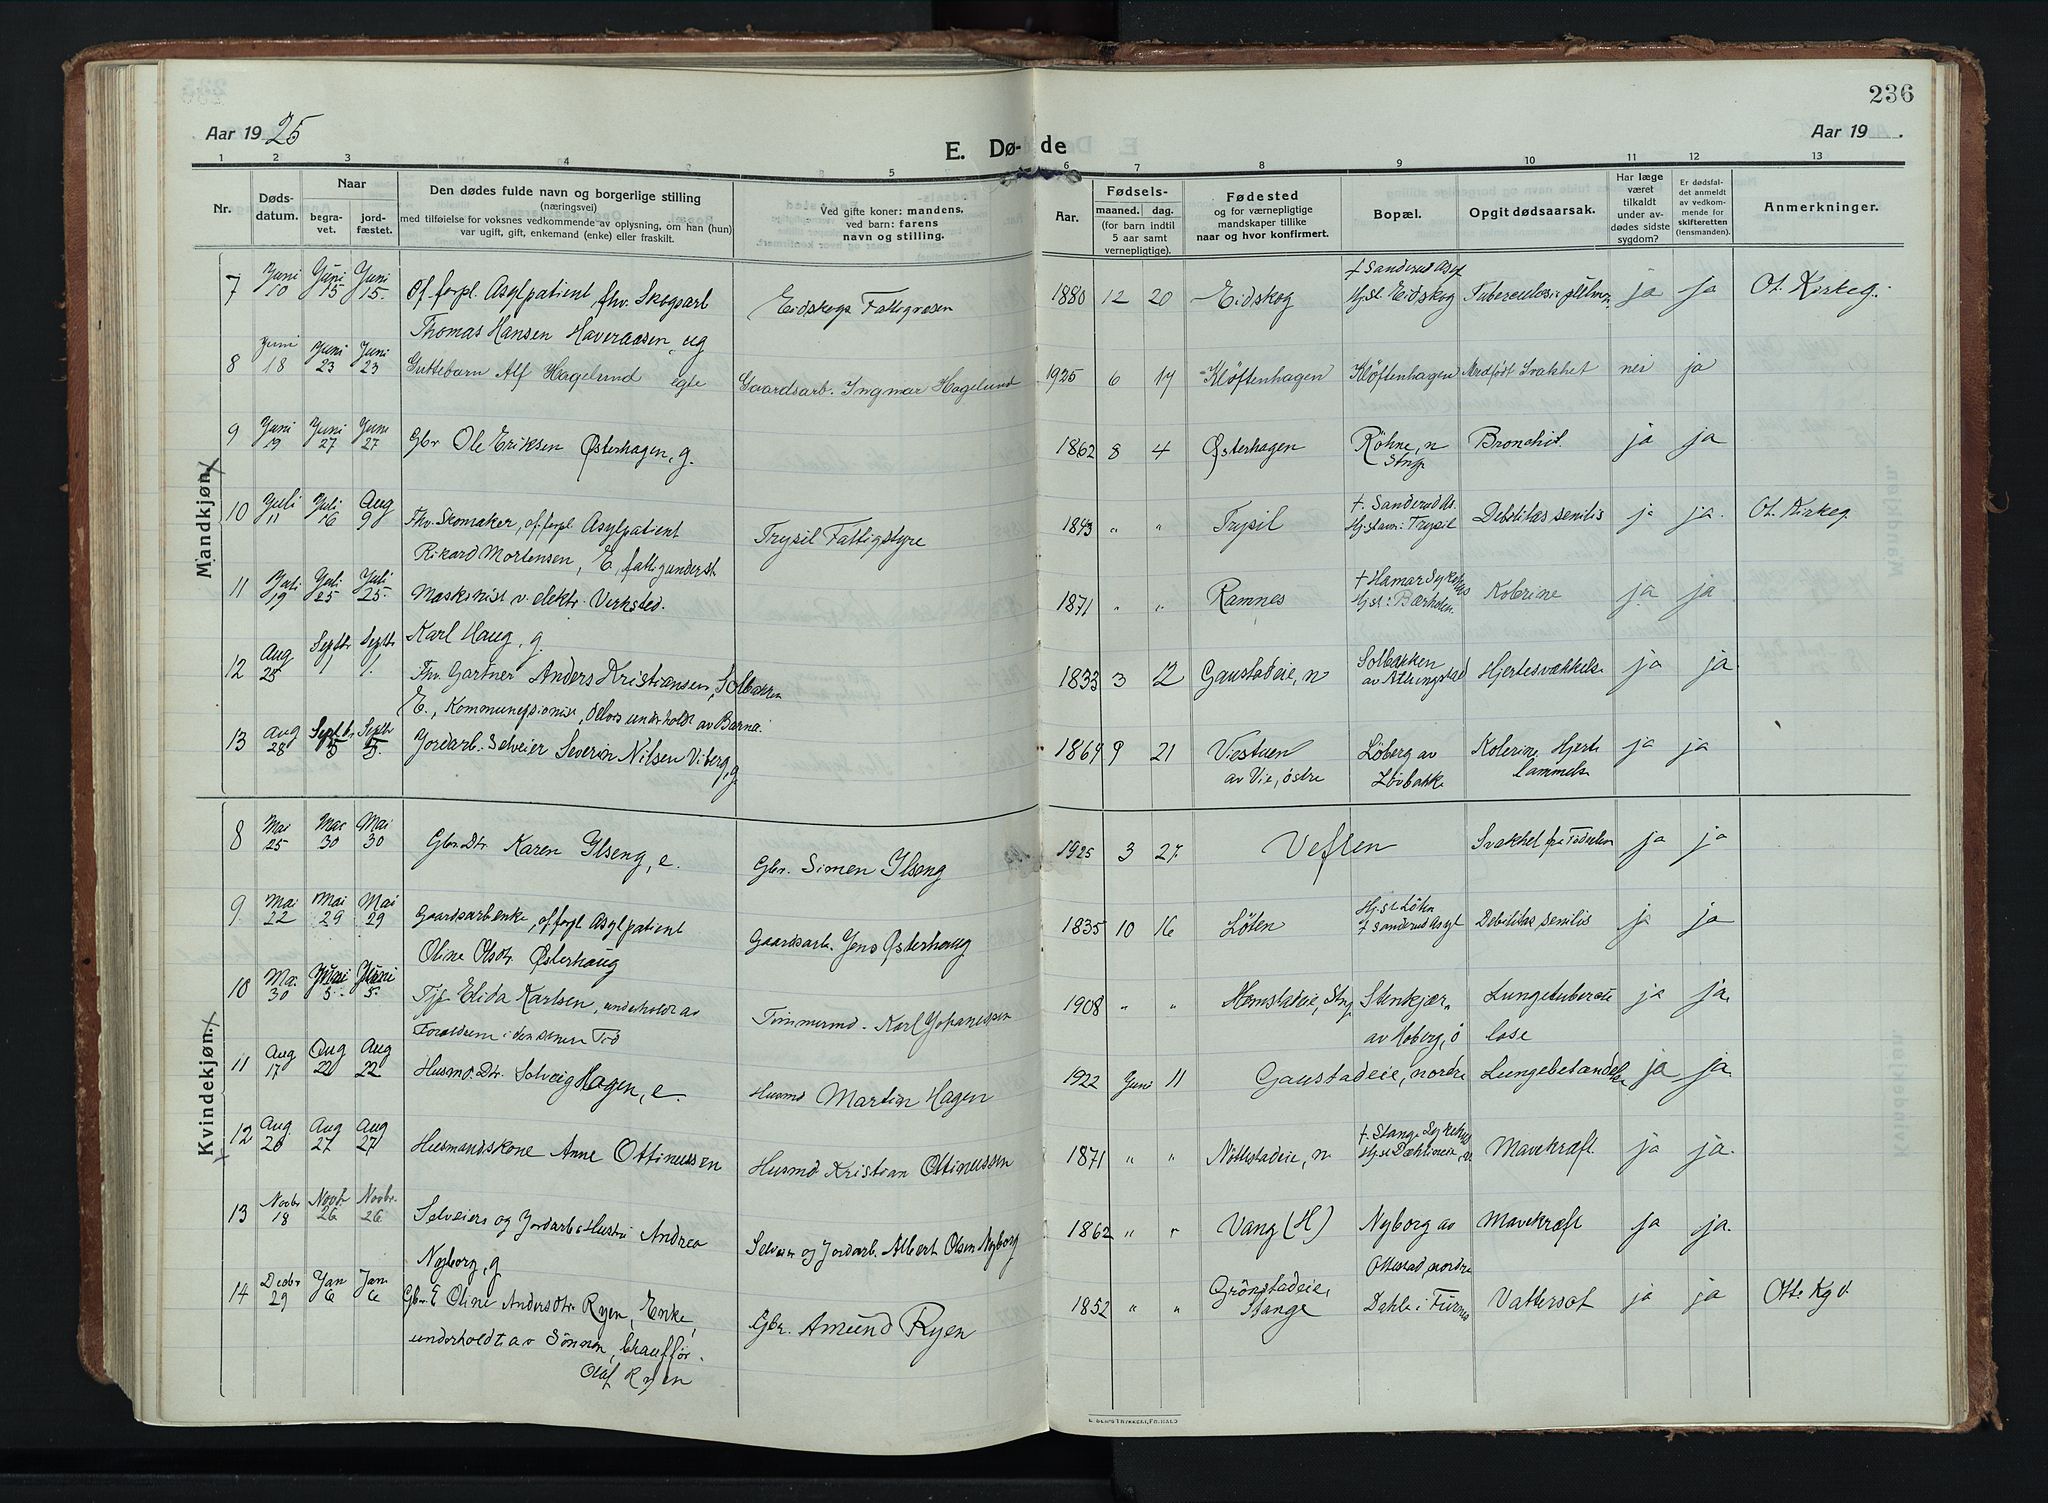 236
Aar 1925
E. Dø- de
Aar 19 .
1 2 3 4 5 6 7 8 9 10 11 12 13
Nr.
Døds-
datum.
Naar
begra-
vet.
jord-
fæstet.
Den dødes fulde navn og borgerlige stilling
(næringsvei)
med tilføielse for voksnes vedkommende av oplysning, om han (hun)
var ugift, gift, enkemand (enke) eller fraskilt.
Ved gifte koner: mandens,
ved barn: farens
navn og stilling.
Aar.
Fødsels-
maaned. dag.
(for barn indtil
5 aar samt
vernepligtige).
Fødested
og for værnepligtige
mandskaper tillike
naar og hvor konfirmert.
Bopæl.
Opgit dødsaarsak.
Har læge
været
tilkaldt
under av-
dødes sidste
sygdom?
Er dødsfal-
det anmeldt
av vedkom-
mende for
skifteretten
(lensmanden).
Anmerkninger.
Mandkjøn.
7 Juni 10 Juni 15 Juni 15. Of. forpl. Asylpatient, fhv. Skogsarb Eidskogs Fattigvæsen 1880 12 20 Eidskog † Sanderud Asyl
Hj.st. Eidskog Tuberculosis pulmon. ja ja Ot. Kirkeg.
Thomas Hansen Haveraasen, ug
8 Juni 18 Juni 23 Juni 23 Guttebarn Alf Hagelund egte Gaardsarb. Ingmar Hagelund 1925 6 17 Kløftenhagen Kløftenhagen Medfødt Svakhet nei ja
9 Juni 19 Juni 27 Juni 27 Gbr Ole Eriksen Østerhagen, g. 1862 8 4 Østerhagen Röhne, n
Stnge Bronchit. ja ja
10 Juli 11 Juli 16 Aug 9 Fhv. Skomaker, of. forpl Asylpatient Trysil Fattigstyre 1843 " " Trysil † Sanderud As.
Hj.stavn: Trysil Debilitas senilis ja ja. Ot. Kirkeg.
Rikard Mortensen, E, fattigunderst
11 Juli 19 Juli 25 Juli 25. Maskinist v. elektr. Verksted. 1871 " " Ramnes † Hamar Sykehus
Hj.st: Bærholen Kolerine ja ja
Karl Haug, g.
12 Aug 25 Septbr 1 Septbr 1. Fhv. Gartner Anders Kristiansen, Solbakken 1833 3 12 Gaustadeie, n Solbakken
av Arhingstad Hjertesvækkelse ja ja.
E., Kommunepsionist, delvis underholdt av Barna.
13 Aug 28 Septbr 5 Septbr 5. Jordarb. Selveier Severin Nilsen Viberg, g. 1869 9 21 Viestuen
av Vie, østre Løberg av
Løvbakke Kolerine, Hjerte
lammelse ja ja
Kvindekjøn.
8 Mai 25 Mai 30 Mai 30 Gbr. Dtr. Karen Ilseng, e. Gbr. Simen Ilseng 1925 3 27. Veflen Svakhet fra Fødselen ja ja
9 Mai 22 Mai 29 Mai 29 Gaardsarb enke, of forpl Asylpatient Gaardsarb. Jens Østerhaug 1835 10 16 Löten Hj.st Löten
† Sanderud Asyl Debilitas senilis ja ja
Oline Olsdtr. Østerhaug
10 Mai 30 Juni 5. Juni 5. Tjp. Elida Karlsen, underholdt av Tømmermd. Karl Johanessen 1908 " " Homstadeie, Stng. Stenkjær Lungetuberku ja ja.
Forældrene i den senere Tid av Hoberg, ö lose
11 Aug 17 Aug 22 Aug 22 Husmd. Dtr. Solveig Hagen, e. Husmd Martin Hagen 1922 Juni 11 Gaustadeie, nordre Lungebetændelse ja ja.
12 Aug 20 Aug 27 Aug 27 Husmandskone Anne Ottinussen Husmd Kristian Ottinussen 1871 " " Nöttestadeie, n. † Stange Sykehus
Hj.st Dæhlineie, n Mavekræft. ja ja.
13 Novbr 18 Novbr 26 Novbr. 26 Selveiers og Jordarb. Hustru Andrea Selveier og Jordarb. Albert Olsen Nyborg 1862 " " Vang (H) Nyborg av Mavekræft ja ja.
Nyborg, g Ottestad, nordre
14 Decbr 29 Jan 6 Jan 6 Gbr. E Oline Andersdtr Ryen, Enke, Gbr. Amund Ryen 1852 " " Grönstadeie,
Stange Dahle i Furnes Vattersot ja ja Otte Kgd.
underholdt av Sønnen, Chauffør.
Olaf Ryen